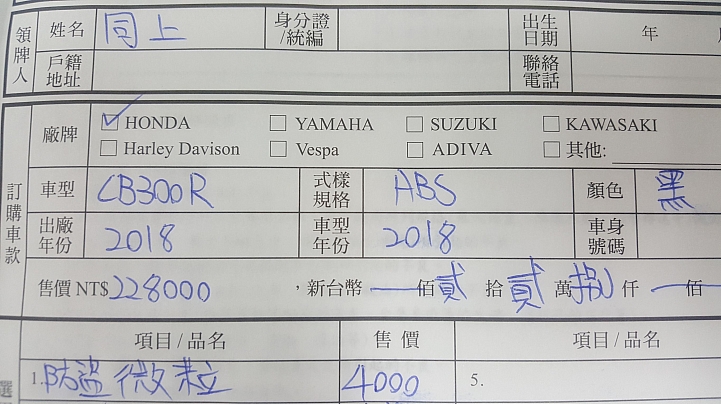 領牌人 姓名 同上 身分證/統編 出生日期 年
戶籍地址 聯絡電話
訂購車款 廠牌 ☑ HONDA □ YAMAHA □ SUZUKI □ KAWASAKI
□ Harley Davison □ Vespa □ ADIVA □ 其他:
車型 CB300R 式樣規格 ABS 顏色 黑
出廠年份 2018 車型年份 2018 車身號碼
售價 NT$ 228000 ,新台幣 — 佰 貳 拾 貳 萬 捌 仟 — 佰
項目 / 品名 售價 項目 / 品名
1. 防盜微粒 4000 5.
選